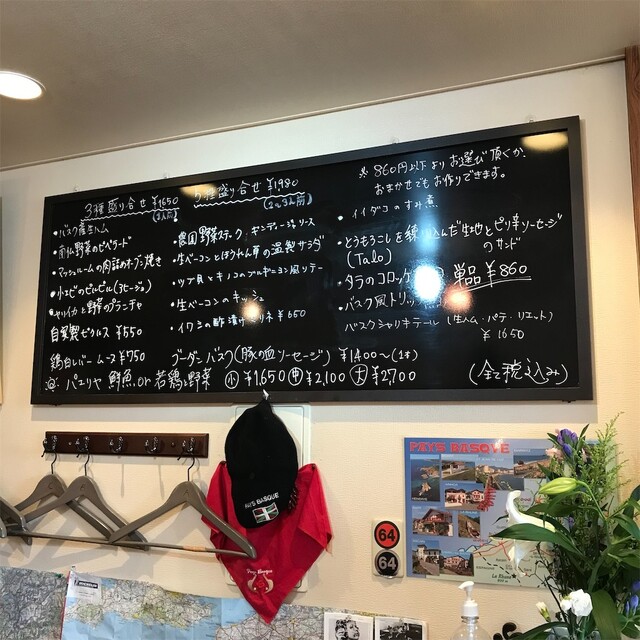 3種盛り合せ ¥1650
(2人前)
5種盛り合せ ¥1980
(2〜3人前)
※ 860円以下よりお選び頂くか、
おまかせでもお作りできます。
・バスク産生ハム
・南仏野菜のピペラード
・マッシュルームの肉詰めオーブン焼き
・小エビのピルピル(アヒージョ)
・ヤリイカと野菜のプランチャ
自家製ピクルス ¥550
鶏白レバームース ¥750
・農園野菜ステーク・
・生ベーコンとほうれん草の温製サラダ
・ツブ貝とキノコのブルギニョン風ソテー
・生ベーコンのキッシュ
・イワシの酢漬けマリネ ¥650
・イイダコのすみ煮
・とうもろこしを練り込んだ生地とピリ辛ソーセージ
のサンド
(Talo)
・タラのコロッケ
単品 ¥860
・バスク風トリッパ
バスクシャルキテール (生ハム・パテ・リエット)
¥1650
ブーダンバスク(豚の血ソーセージ) ¥1400〜(1本)
パエリヤ 鮮魚 or 若鶏と野菜 小 ¥1,650 中 ¥2,100 大 ¥2,700
(全て税込み)
PAYS BASQUE
PAYS BASQUE
Pays Basque
64
64